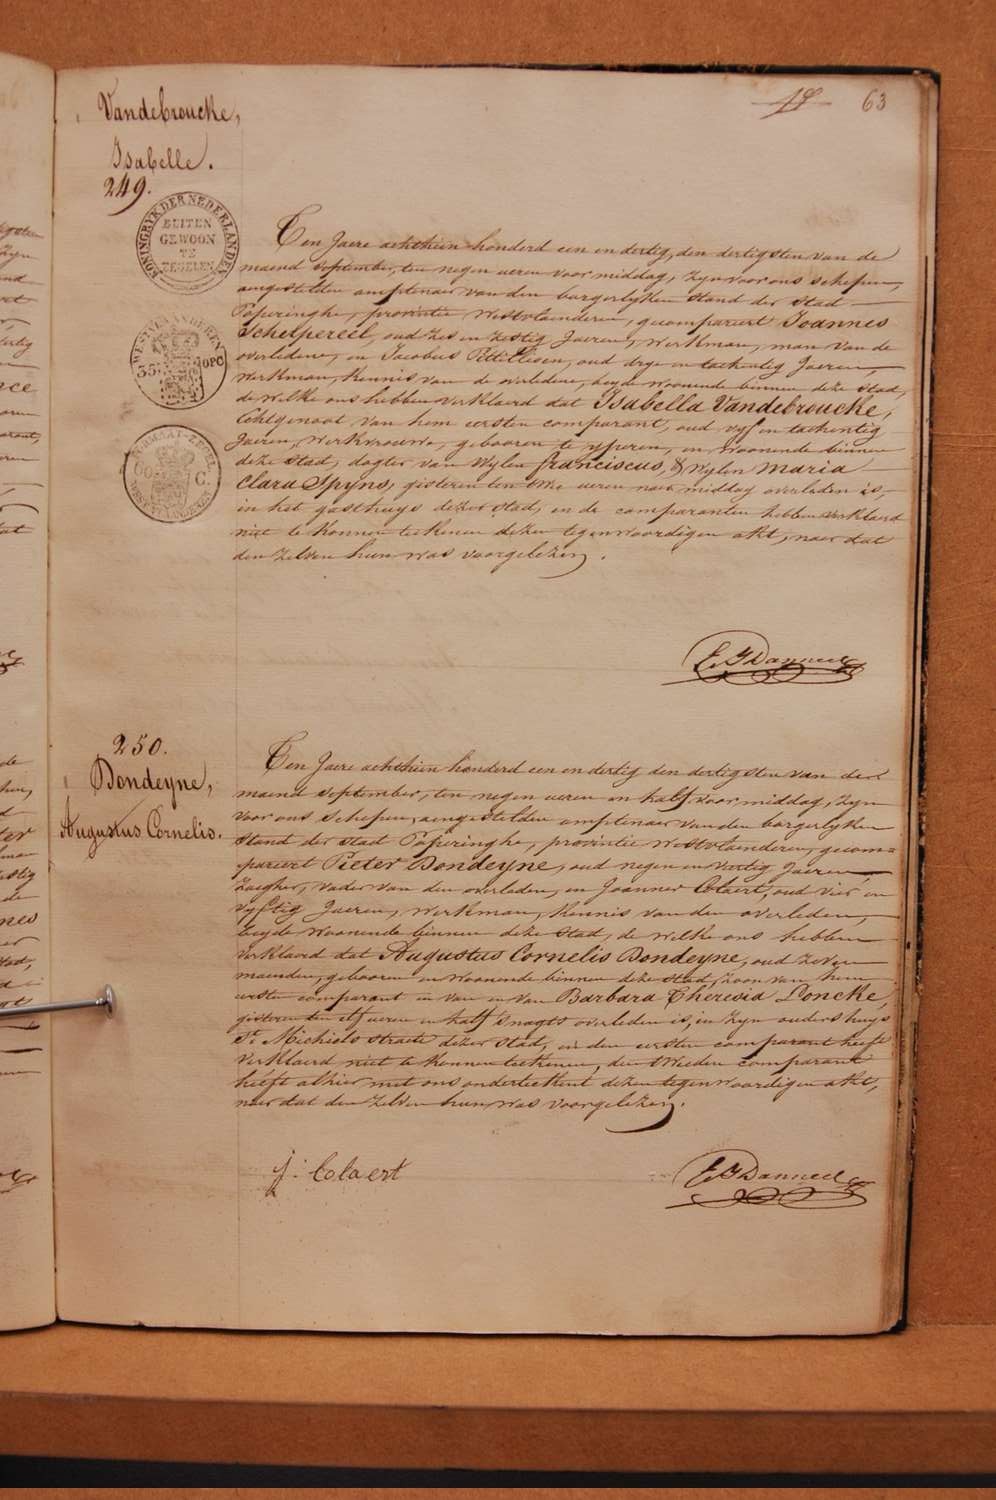 63
Vandebroucke,
Isabelle.
249.
KONINGRYK DER NEDERLANDEN
BUITEN
GEWOON
TE
ZEGELEN
WESTVLAANDEREN
35
OPC
FORMAAT-ZEGEL
60 C.
WESTVLAANDEREN
Ten Jaere achthien honderd een en dertig, den dertigsten van de
maend september, ten negen ueren voormiddag, zyn voor ons schepen,
aengestelden amptenaer van den borgerlyken stand der stad
Poperinghe, provintie westvlaenderen, gecompareert Joannes
Schelpereel, oud zes en zestig Jaeren, werkman, man van de
overledene, en Jacobus Petillioen, oud drye en tachentig Jaeren,
werkman, kennis van de overledene, beyde woonende binnen deze stad,
de welke ons hebben verklaerd dat Isabella Vandebroucke,
Echtgenoot van hem eersten comparant, oud vyf en tachentig
Jaeren, werkvrouw, gebooren te yperen, en woonende binnen
deze stad, dogter van wylen franciscus, & wylen Maria
Clara Spyns, gisteren ten twe ueren naer middag overleden is,
in het gasthuys dezer stad, en de comparanten hebben verklaerd
niet te konnen teekenen dezen tegenwoordigen akt, naer dat
den zelven hun was voorgelezen.
250.
Dondeyne,
Augustus Cornelis.
Ten Jaere achthien honderd een en dertig den dertigsten van der
maend september, ten negen ueren en half voormiddag, zyn
voor ons schepen, aengestelden amptenaer van den borgerlyken
stand der stad Poperinghe, provintie westvlaenderen, gecom=
pareert Pieter Dondeyne, oud negen en veertig Jaeren,
Zaegher, vader van den overleden, en Joannes Colaert, oud vier en
vyftig Jaeren, werkman, kennis van den overleden,
beyde woonende binnen deze stad, de welke ons hebben
verklaerd dat Augustus Cornelis Dondeyne, oud zeven
maenden, gebooren en woonende binnen deze stad, zoon van hem
eersten comparant en van en van Barbara Theresia Loncke,
gisteren ten elf ueren en half s'nagts overleden is, in zyn ouders huys
St Michiels straete dezer stad, en den eersten comparant heeft
verklaerd niet te konnen teekenen, den tweeden comparant
heeft alhier met ons onderteekent dezen tegenwoordigen akt,
naer dat den zelven hun was voorgelezen.
j: Colaert